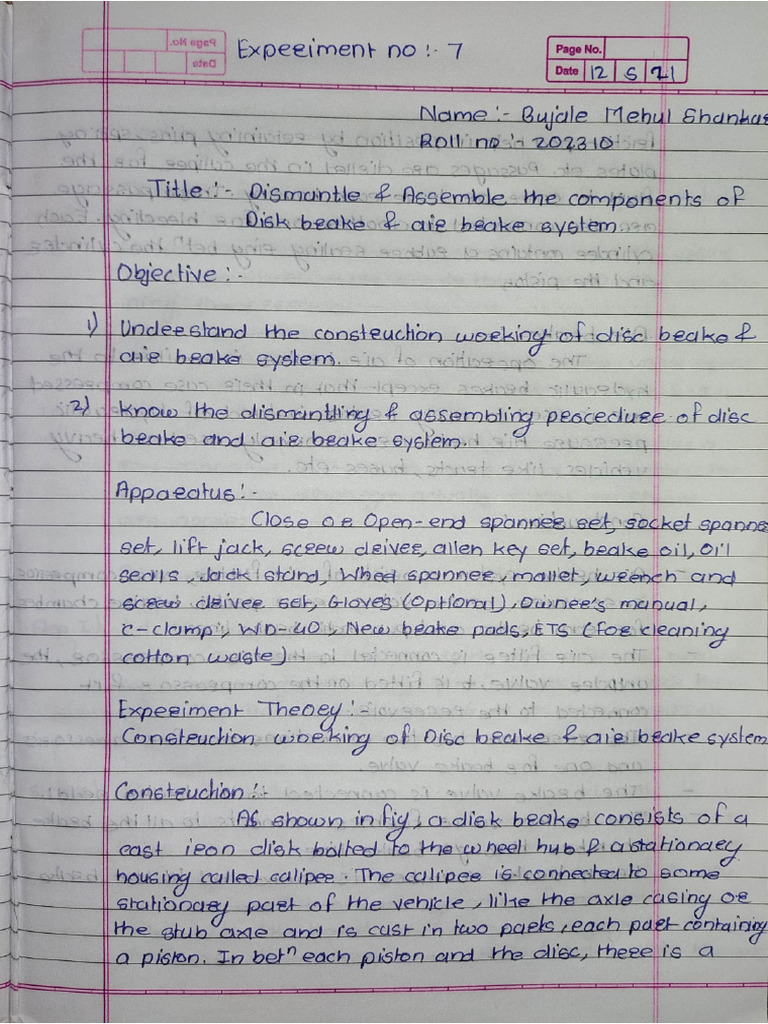 Experiment no :- 7
Page No.
Date 12 5 21
Name :- Bujale Mehul Shankar
Roll no :- 202310
Title :- Dismantle & Assemble the components of
Disk brake & air brake system
Objective :-
1) Understand the construction working of disc brake &
air brake system.
2) Know the dismantling & assembling procedure of disc
brake and air brake system.
Apparatus :-
Close or Open-end spanner set, socket spanner
set, lift jack, screw driver, allen key set, brake oil, oil
seals, Jack stand, Wheel spanner, mallet, wrench and
screw driver set, Gloves (Optional), Owner's manual,
C-clamp, WD-40, New brake pads, ETS (for cleaning
cotton waste)
Experiment Theory :-
Construction working of Disc brake & air brake system
Construction :-
As shown in fig, a disk brake consists of a
cast iron disk bolted to the wheel hub & a stationary
housing called caliper. The caliper is connected to some
stationary part of the vehicle, like the axle casing or
the stub axle and is cast in two parts, each part containing
a piston. In betⁿ each piston and the disc, there is a